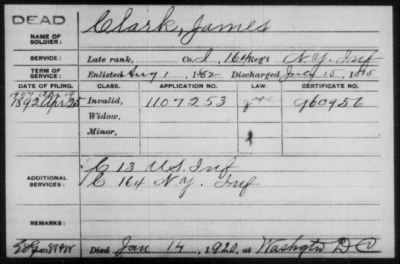 DEAD
NAME OF SOLDIER: Clark, James
SERVICE: Late rank, Co. I, 164 Reg't N.Y. Inf
TERM OF SERVICE: Enlisted Aug 1, 1862 Discharged July 15, 1865
DATE OF FILING. CLASS. APPLICATION NO. LAW. CERTIFICATE NO.
1892 Apr 25 Invalid, 1107253 960956
Widow,
Minor,
ADDITIONAL SERVICES: C 13 U.S. Inf
C 164 N.Y. Inf
REMARKS:
Died Jan 14, 1920, at Washgton D C